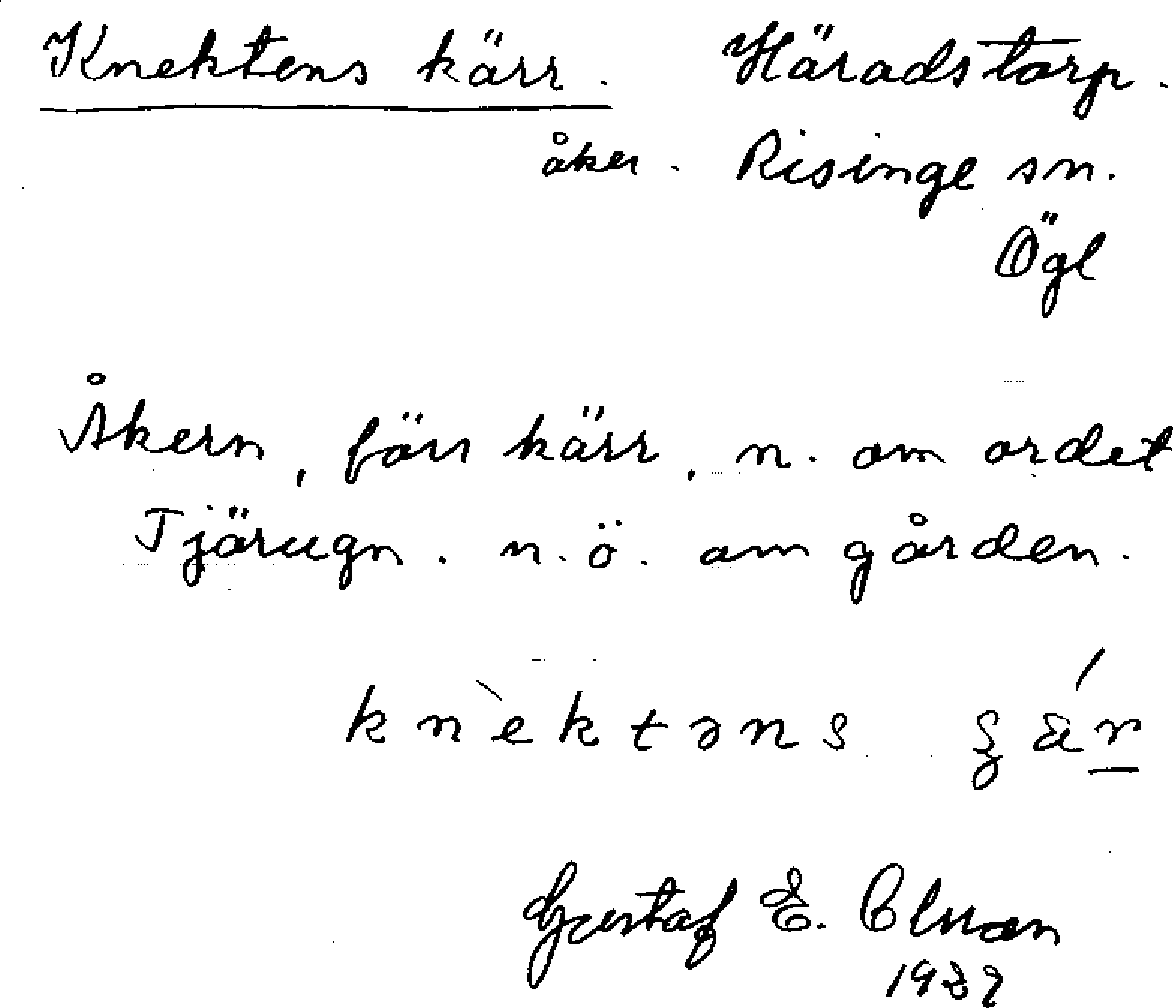 Knektens kärr. Häradstorp.
åker. Risinge sn.
Ögl
Åkern, förr kärr, n. om ordet
Tjärugn. n.ö. om gården.
knèktəns
Gustaf E.